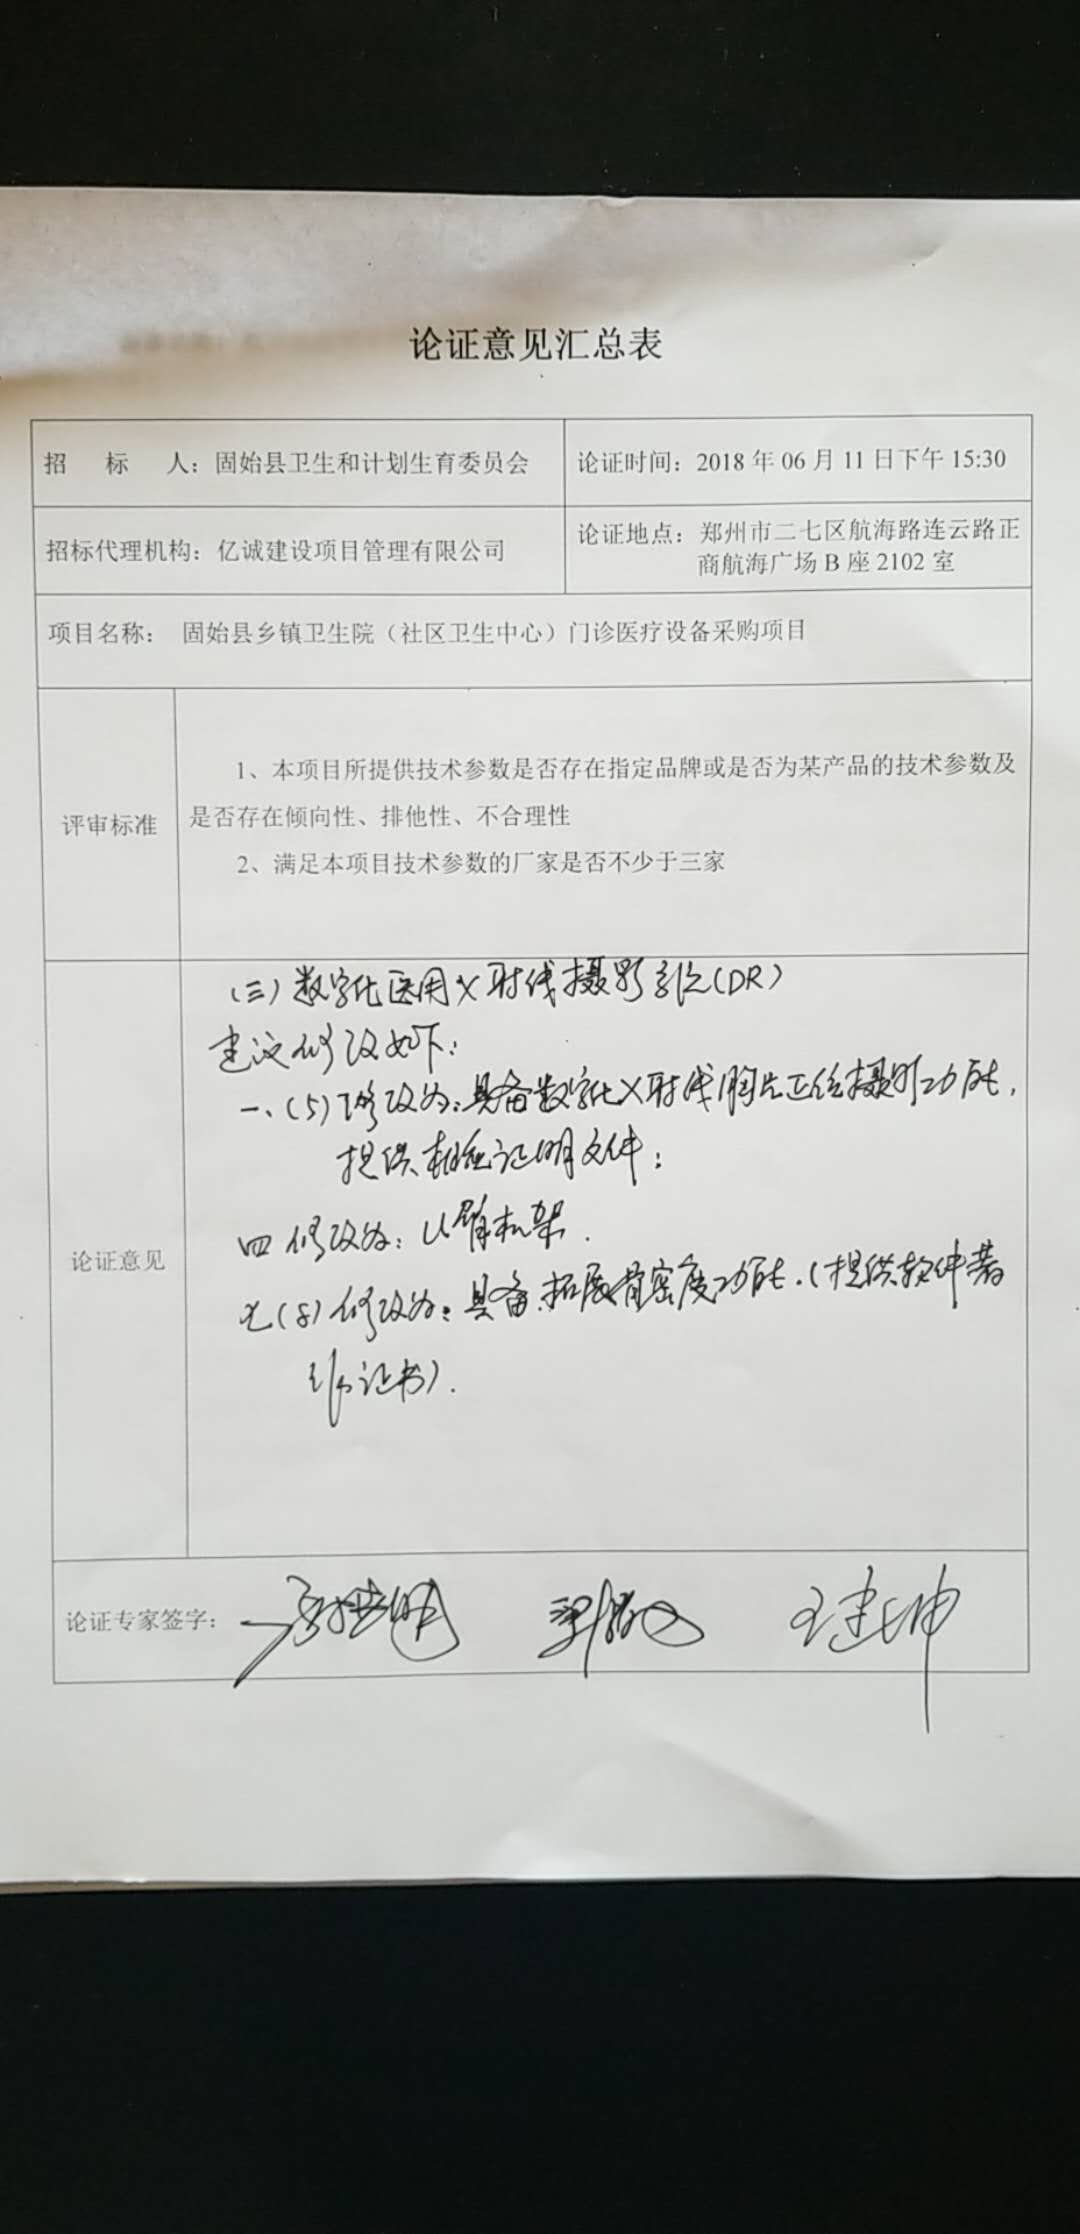 论证意见汇总表
招 标 人：固始县卫生和计划生育委员会
论证时间：2018 年 06 月 11 日下午 15:30
招标代理机构：亿诚建设项目管理有限公司
论证地点：郑州市二七区航海路连云路正
商航海广场 B 座 2102 室
项目名称： 固始县乡镇卫生院（社区卫生中心）门诊医疗设备采购项目
评审标准
1、本项目所提供技术参数是否存在指定品牌或是否为某产品的技术参数及
是否存在倾向性、排他性、不合理性
2、满足本项目技术参数的厂家是否不少于三家
论证意见
（三）数字化医用X射线摄影系统（DR）
建议修改如下：
一、（5）修改为：具备数字化X射线胸片正位摄影功能，
提供相应证明文件；
四 修改为：U臂机架．
七（8）修改为：具备拓展骨密度功能．（提供软件著
作证书）．
论证专家签字：
王建坤